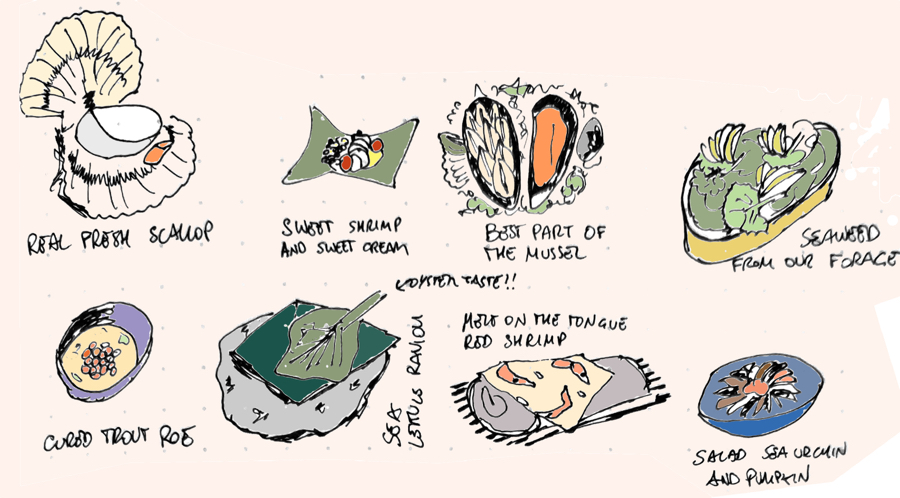 REAL FRESH SCALLOP
SWEET SHRIMP
AND SWEET CREAM
BEST PART OF
THE MUSSEL
SEAWEED
FROM OUR FORAGE
CURED TROUT ROE
OYSTER TASTE!!
SEA
LETTUCE RAVIOLI
MELT ON THE TONGUE
RED SHRIMP
SALAD SEA URCHIN
AND PUMPKIN